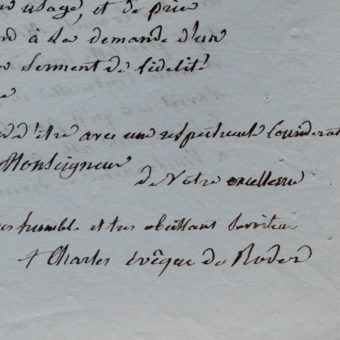 usage, et de price
à la demande d'un
serment de fidelité
d'être avec une respectueuse considerat
Monseigneur
de Votre excellence
humble et tres obeissant serviteur
+ Charles évêque de Rodez